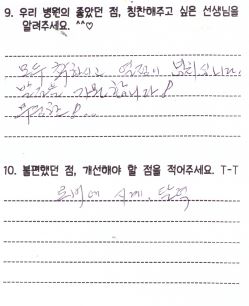 9. 우리 병원의 좋았던 점, 칭찬해주고 싶은 선생님을
알려주세요. ^^♡
모두 친하시는 열정이 넘치십니다.
발전을 기원합니다!
무궁한!...
10. 불편했던 점, 개선해야 할 점을 적어주세요. T-T
로비에 시계. 달력